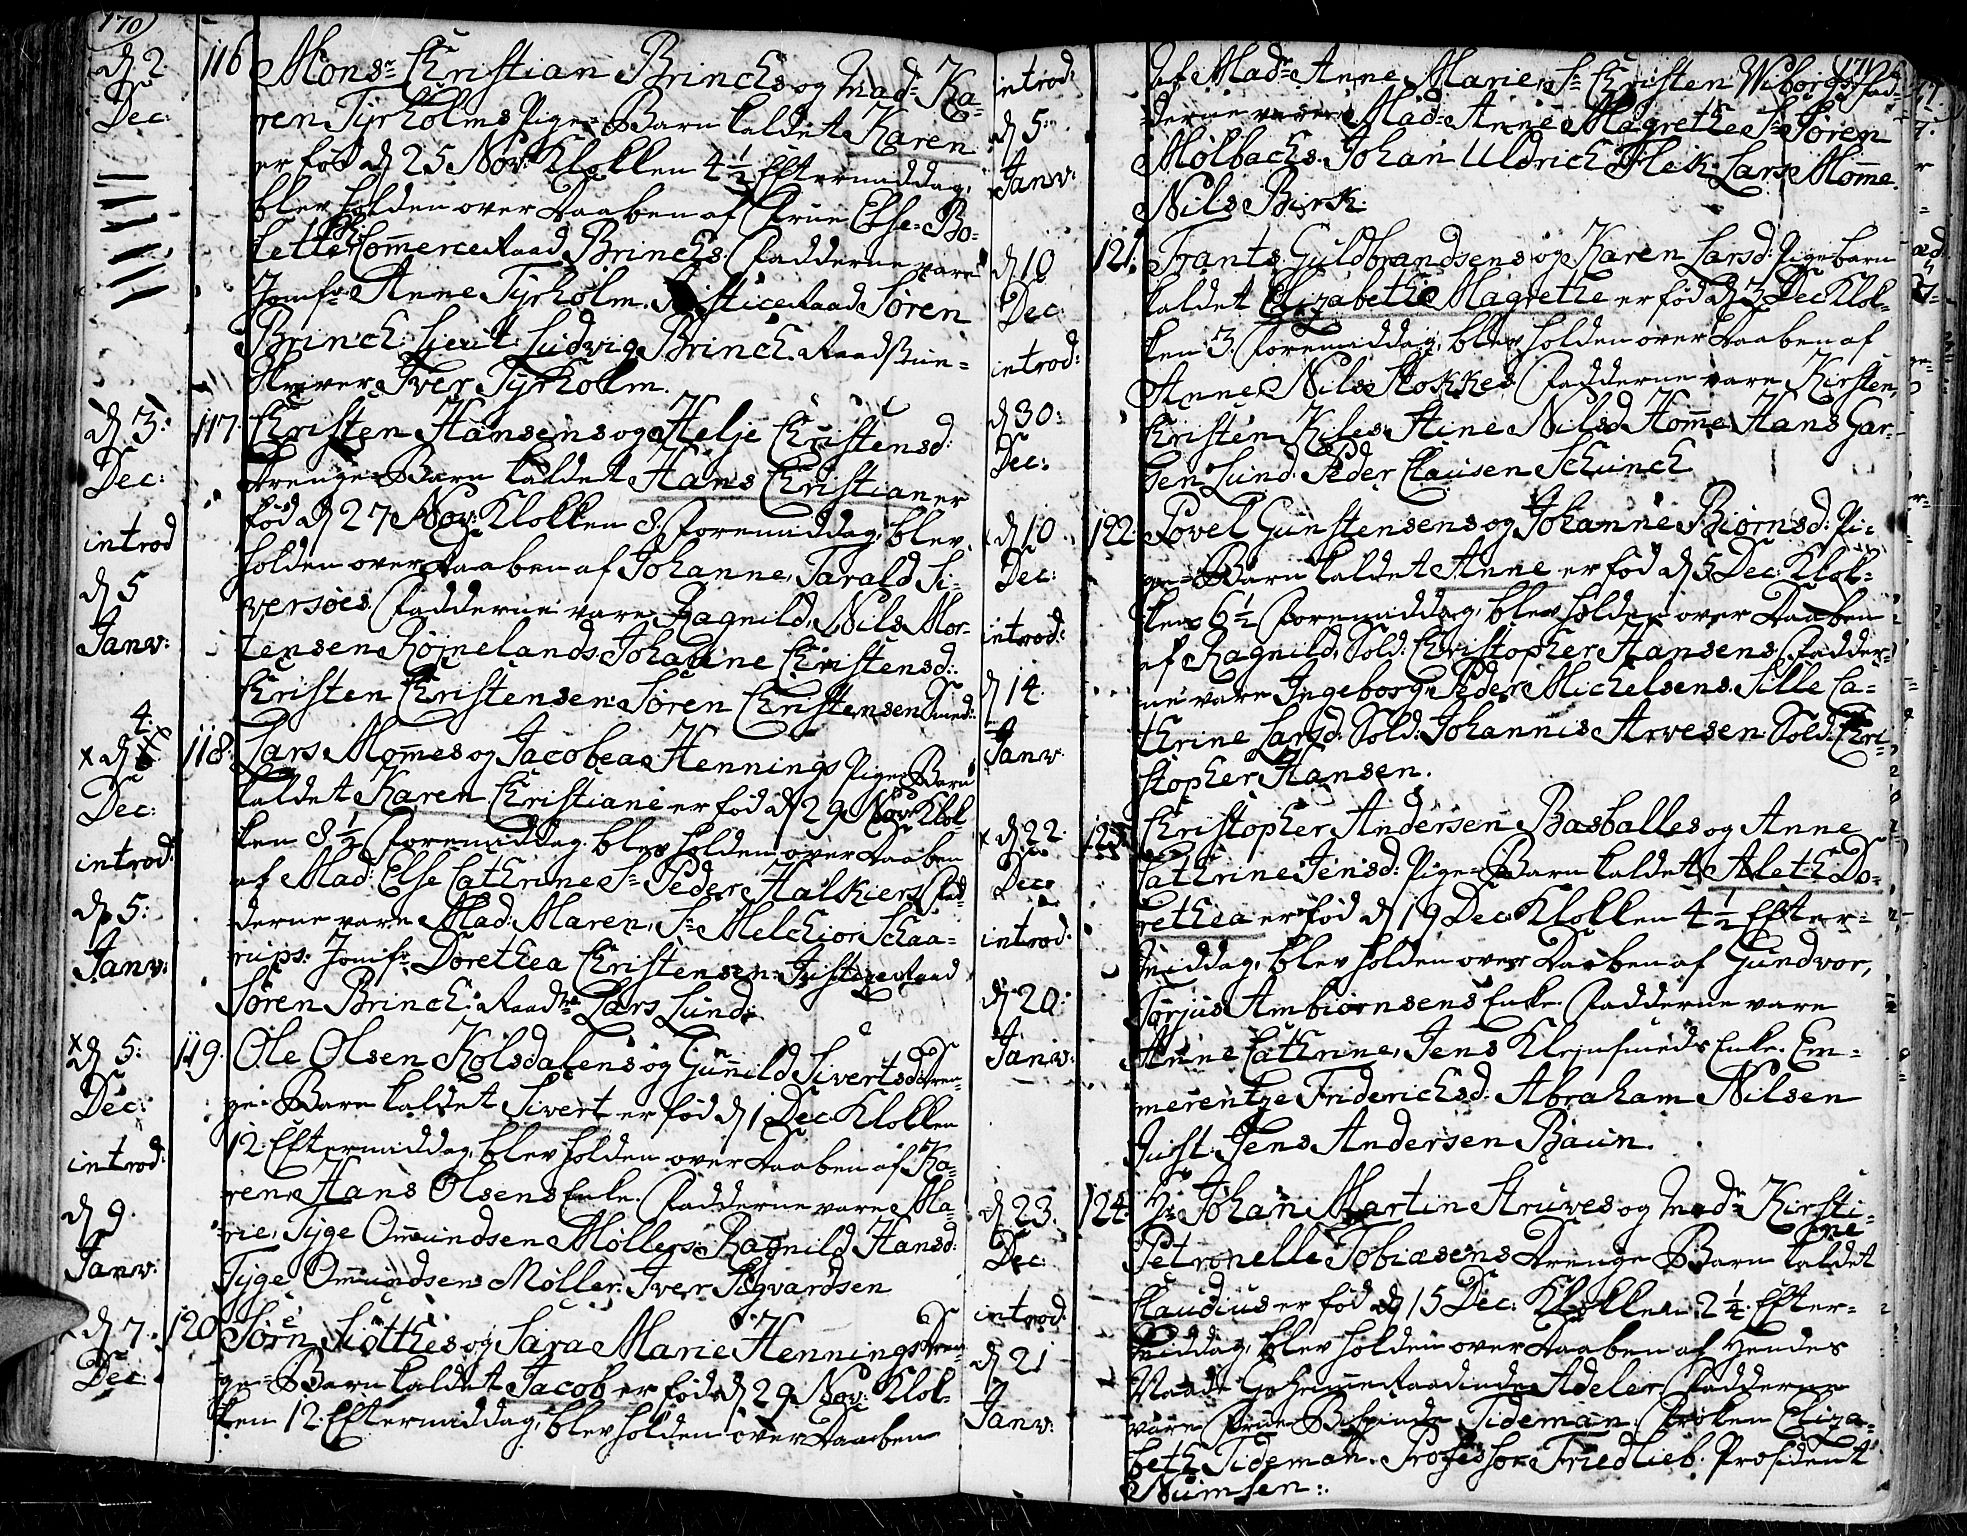 170
d 2 Dec:
116 Monsr Christian Brinchs og Mad: Ka=
ren Tyrholms Pige=Barn kaldet Karen
er fød d 25 Nov: Klokken 4 1/2 Eftermiddag,
blev holden over Daaben af Frue Else Bo=
lette CommerceRaad Brinchs. Fadderne vare
Jomfr Anne Tyrholm. JusticeRaad Søren
Brinch. Lieut: Ludvig Brinch. Raadstue=
skriver Iver Tyrholm.
d 3: Dec:
introd
d 5 Janv:
117. Christen Hansens og Helje Christensd:
Drenge=Barn kaldet Hans Christian er
fød d 27 Nov: Klokken 8 Formiddag, blev
holden over Daaben af Johanne, Tarald Si=
versøes. Fadderne vare Ragnild, Nils Mor=
tensen Røjnelands. Johanne Christensd:
Christen Christensen. Søren Christensen Smed:
x d 4: Dec:
introd:
d 5: Janv:
118. Lars Mom̅es og Jacobea Hennings Pige=Barn
kaldet Karen Christiane er fød d 29 Nov: Klok=
ken 8 1/2 Formiddag, blev holden over Daaben
af Mad: Else Cathrine Sr Peder Halkiers. Fad=
derne vare Mad: Maren, Sr Melchior Schaa=
rups. Jomfr Dorethea Christensen. JusticeRaad
Søren Brinch. Raadm Lars Lund.
x d 5: Dec:
introd:
d 9. Janv:
119. Ole Olsen Kolsdalens og Gun̅ild Sivertsd: Dren=
ge=Barn kaldet Sivert er fød d 1 Dec Klokken
12. Eftermiddag, blev holden over Daaben af Ka=
ren, Hans Olsens Enke. Fadderne vare Ma=
rie, Tyge Om̅undsen Møllers. Ragnild Hansd:
Tyge Om̅undsen Møller. Iver Sigvardsen
x d 7. Dec:
120 Søren Siøthes og Sara Marie Hennings Dren=
ge=Barn kaldet Jacob er fød d 29 Nov: Klok=
ken 12. Eftermiddag, blev holden over Daaben
171
introd:
d 5: Janv:
af Madr Anne Marie, Sr Christen Wiborgs. Fad=
derne vare Mad: Anne Magrethe Sr Søren
Mølbachs. Johan Uldrich Fleik. Lars Mom̅e.
Nils Birk.
d 10 Dec:
introd:
d 30: Dec:
121. Frants Guldbrandsens og Karen Larsd: Pigebarn
kaldet Elizabethe Magrethe er fød d 3 Dec Klok=
ken 3. Formiddag, blev holden over Daaben af
Anne, Nils Stokkes. Fadderne vare Kirsten,
Christen Kiles. Stine Nilsd Hom̅e. Hans Gar=
sen Lund. Peder Clausen Schinch
x d 10 Dec:
introd:
d 14. Janv:
122. Povel Gunstensens og Johanne Biørnsd: Pi=
ge=Barn kaldet Anne er fød d 5 Dec: Klok=
ken 6 1/2 Formiddag, blev holden over Daaben
af Ragnild, Sold: Christopher Hansens. Fadder=
ne vare Ingeborg, Peder Michelsens. Sille Ca=
thrine Larsd: Sold: Johannis Arvesen. Sold: Chri=
stopher Hansen.
x d 22. Dec:
introd:
d 20: Janv:
123. Christopher Andersen Basballes og Anne
Cathrine Jensd: Pige=Barn kaldet Aleth Do=
rethea er fød d 19 Dec: Klokken 4 1/2 Efter=
middag, blev holden over Daaben af Gundvor,
Torjus Ambiornsens Enke. Fadderne vare
Anne Cathrine, Jens Klejnsmeds Enke. Em=
merentze Friderichsd: Abraham Nilsen
Just. Jens Andersen Baun.
d 23. Dec:
introd:
d 21 Janv:
124. Hr Johan Martin Struves og Madr Kirsti=
ne
Petronelle Tobiasens Drenge Barn kaldet
Claudius er fød d 15 Dec: Klokken 2 1/4. Efter=
middag, blev holden over Daaben af Hendes
Naade GeheimeRaadinde Adeler. Fadderne
vare Frue Bispinde Tideman. Frøken Eliza=
beth Tideman. Professor Friedlieb. Præsident
Numsen:.